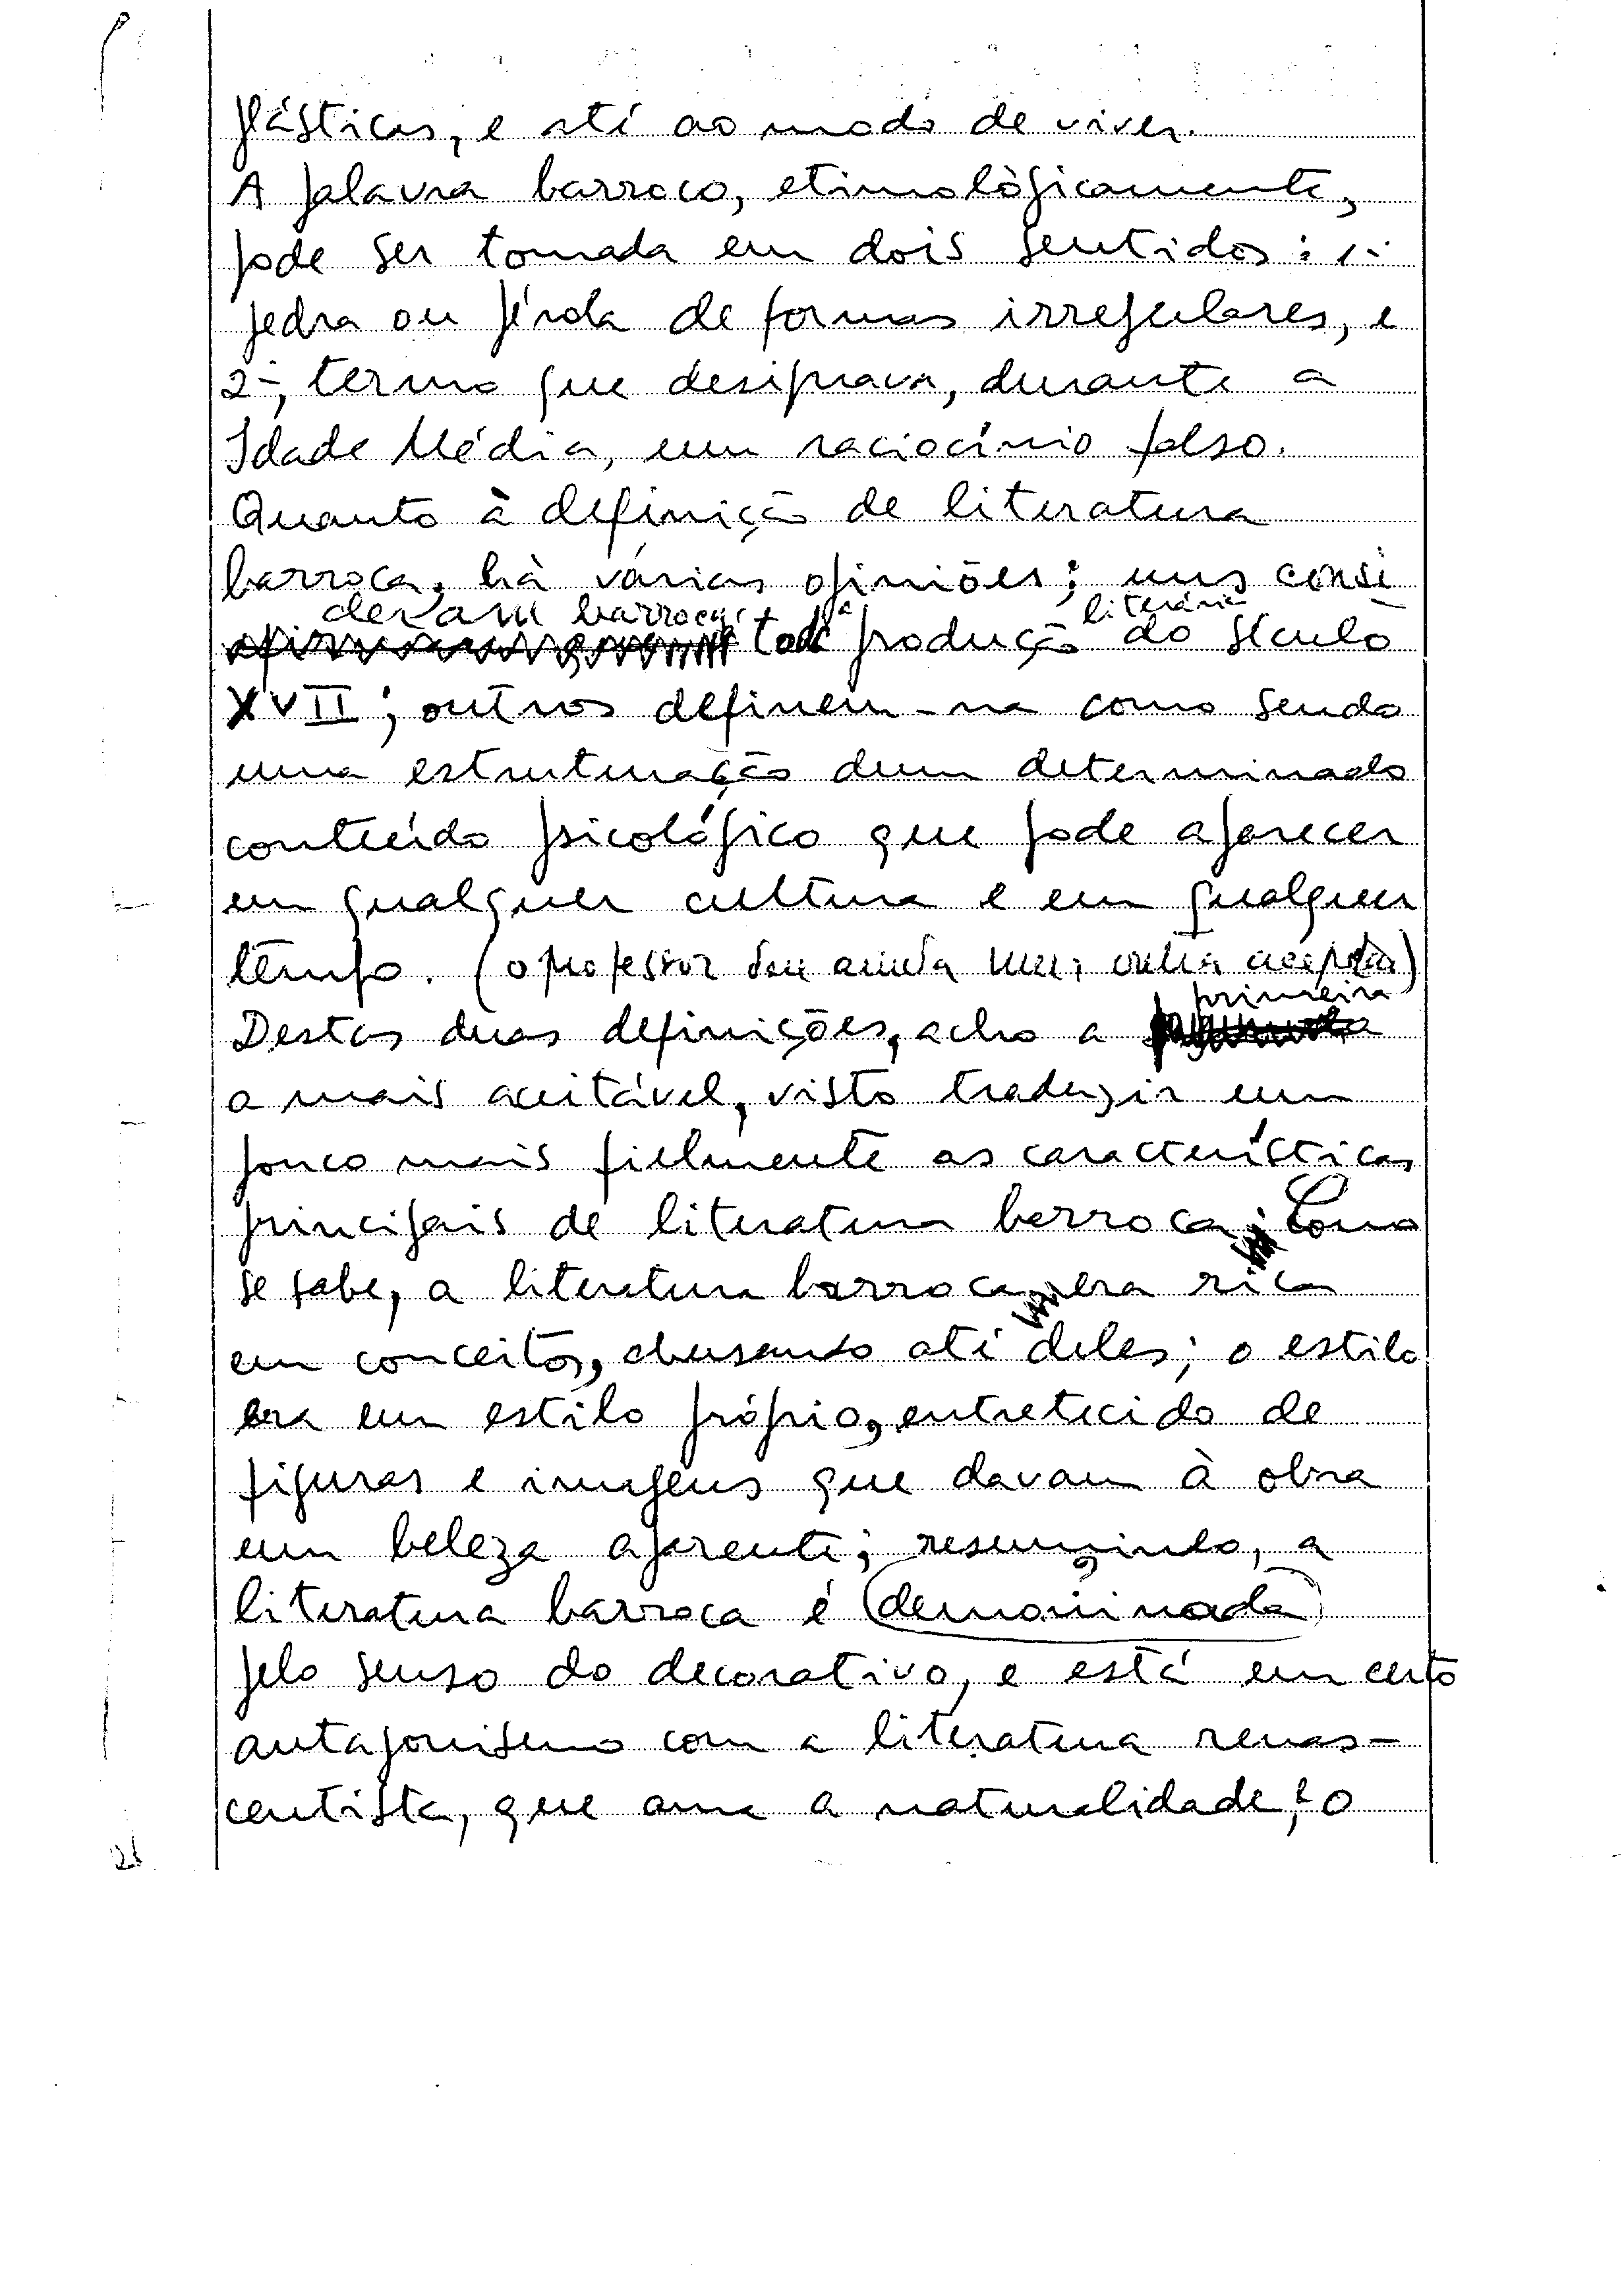 plásticas, e até ao modo de viver.
A palavra barroco, etimològicamente,
pode ser tomada em dois sentidos: 1º
pedra ou pérola de formas irregulares, e
2º, termo que designava, durante a
Idade Média, um raciocínio falso.
Quanto à definição de literatura
barroca, há várias opiniões; uns consi-
deram barroca toda a produção literária do século
XVII; outros definem-na como sendo
uma estruturação dum determinado
conteúdo psicológico que pode aparecer
em qualquer cultura e em qualquer
tempo. (o professor deu ainda uma outra acepção)
Destas duas definições, acho a primeira
a mais aceitável, visto traduzir um
pouco mais fielmente as características
principais de literatura barroca; Como
se sabe, a literatura barroca era rica
em conceitos, abusando até deles; o estilo
era um estilo próprio, entretecido de
figuras e imagens que davam à obra
um beleza aparente; resumindo, a
literatura barroca é demominada
pelo senso do decorativo, e está em certo
antagonismo com a literatura renas-
centista, que ama a naturalidade, e o